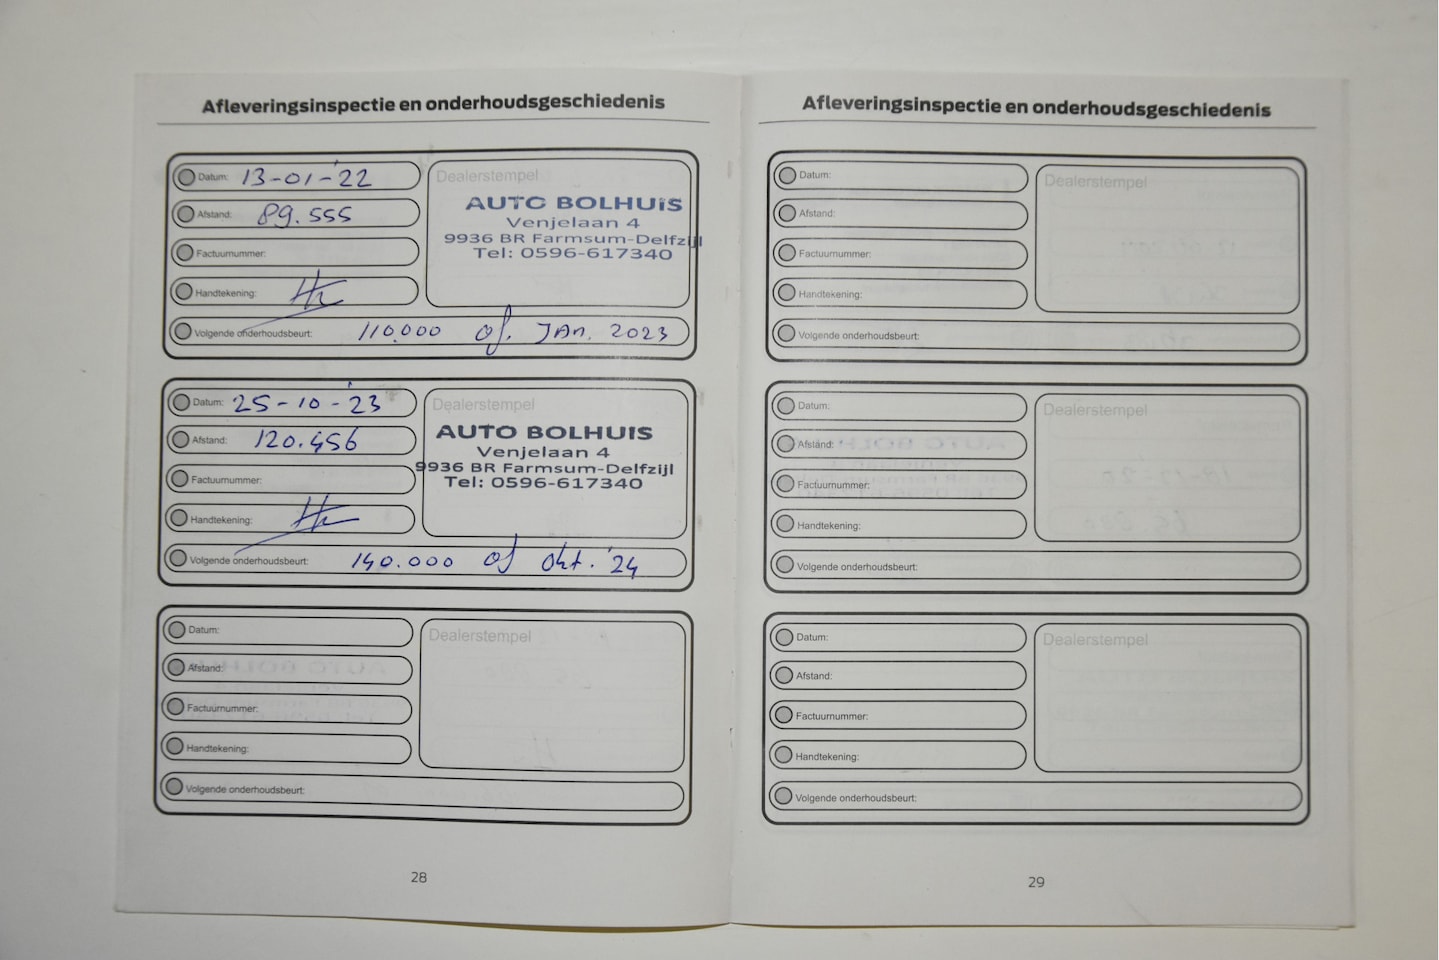 Afleveringsinspectie en onderhoudsgeschiedenis
Datum: 13-01-'22
Afstand: 89.555
Factuurnummer:
Handtekening:
Volgende onderhoudsbeurt: 110.000 of. JAn. 2023
Dealerstempel
AUTO BOLHUIS
Venjelaan 4
9936 BR Farmsum-Delfzijl
Tel: 0596-617340
Datum: 25-10-'23
Afstand: 120.456
Factuurnummer:
Handtekening:
Volgende onderhoudsbeurt: 140.000 of okt. '24
Dealerstempel
AUTO BOLHUIS
Venjelaan 4
9936 BR Farmsum-Delfzijl
Tel: 0596-617340
Datum:
Afstand:
Factuurnummer:
Handtekening:
Volgende onderhoudsbeurt:
Dealerstempel
28
Afleveringsinspectie en onderhoudsgeschiedenis
Datum:
Afstand:
Factuurnummer:
Handtekening:
Volgende onderhoudsbeurt:
Dealerstempel
Datum:
Afstand:
Factuurnummer:
Handtekening:
Volgende onderhoudsbeurt:
Dealerstempel
Datum:
Afstand:
Factuurnummer:
Handtekening:
Volgende onderhoudsbeurt:
Dealerstempel
29